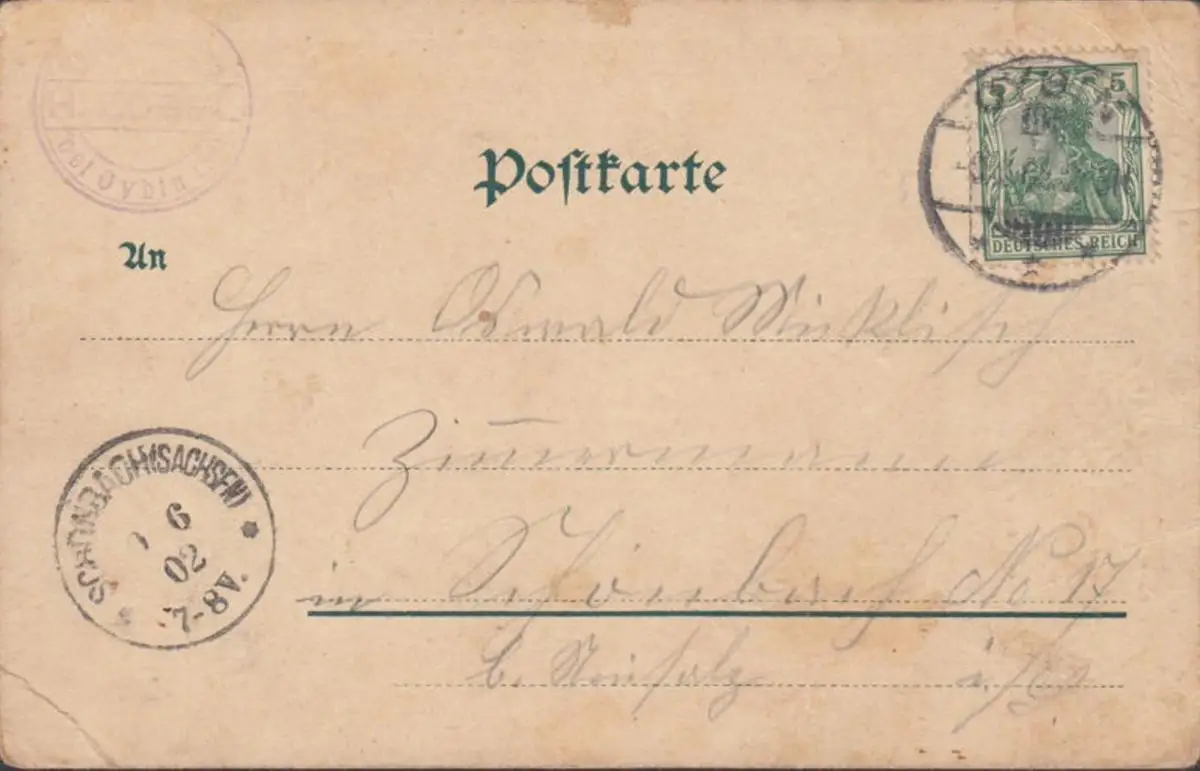 bei Oybin
5 5
DEUTSCHES REICH
Postkarte
An
Herrn Oswald
Zimmermann
in Schönbach No 17
b. Neusalz i/Sa
SCHÖNBACH (SACHSEN)
6
02
7-8V.